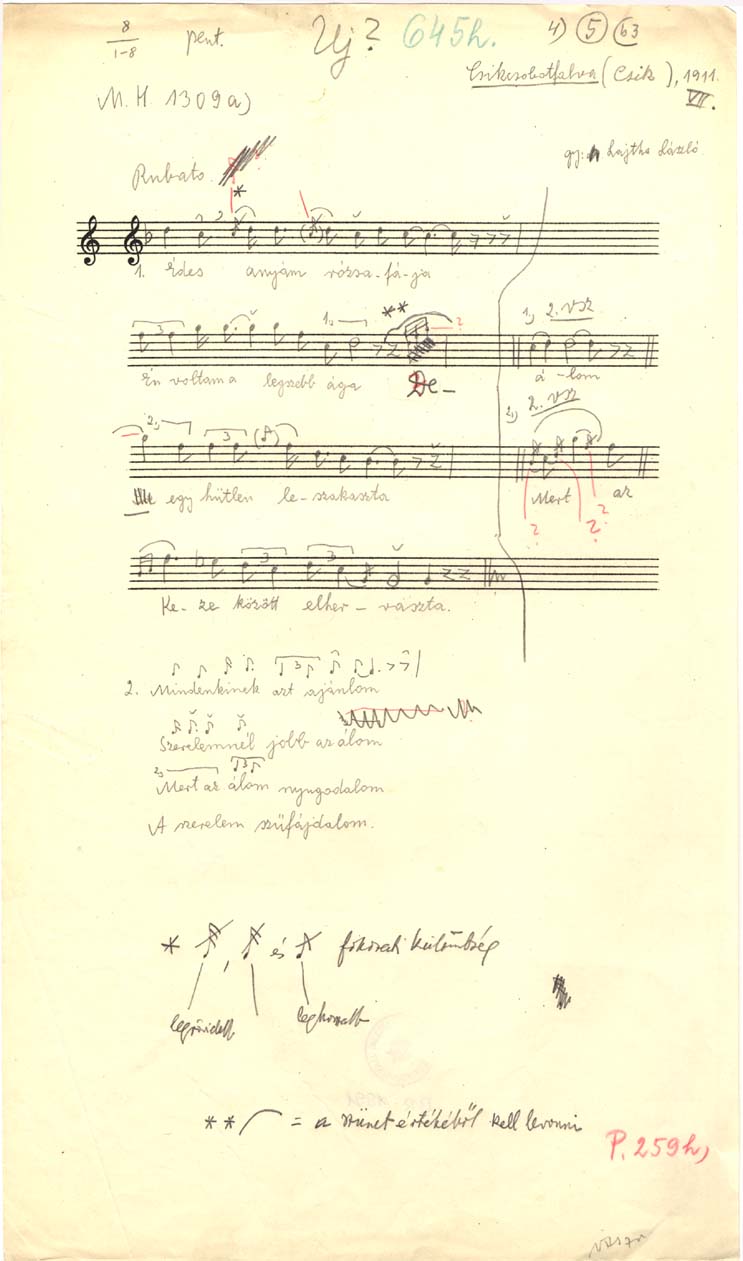 8
1-8
pent.
Uj? 645h.
4) 5 b3
Csikcsobotfalva (Csik), 1911.
VII.
M. H. 1309a)
gy: Lajtha László
Rubato
*
1. Édes anyám rózsa-fá-ja
**
1, 2. vsz
Én voltam a legszebb ága De-
á-lom
2, 2. vsz
egy hütlen le-szakaszta
Mert az
Ke-ze között elher-vaszta.
2. Mindenkinek azt ajánlom
Szerelemnél jobb az álom
2, Mert az álom nyugodalom
A szerelem szüfájdalom.
* , és fokozati külömbség
legrövidebb leghosszabb
** = a szünet értékéből kell levonni
P. 259h,